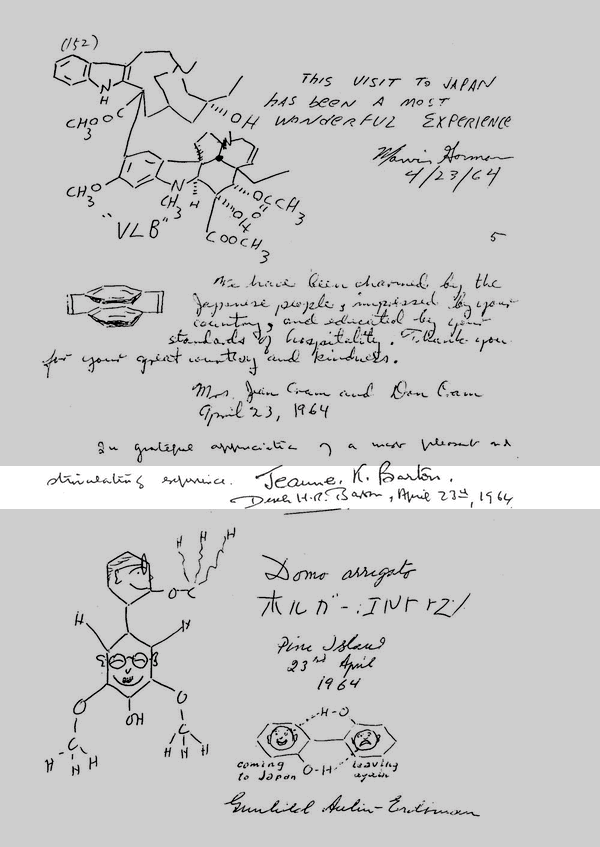 (152)
THIS VISIT TO JAPAN
HAS BEEN A MOST
WONDERFUL EXPERIENCE
N
H
CH3OOC
OH
Marvin Gorman
4/23/64
CH3O
N
CH3
H
OCCH3
O
COOCH3
"VLB"
5
We have been charmed by the
Japanese people, impressed by your
country, and educated by your
standards of hospitality. Thank you
for your great courtesy and kindness.
Mrs. Jean Cram and Don Cram
April 23, 1964
In grateful appreciation of a most pleasant and
stimulating experience. Jeanne. K. Barton.
Derek H.R. Barton, April 23rd, 1964
H H H
O-C
Domo arrigato
ホルガー
H H
Pine Island
23rd April
1964
O OH O
C C
H H H H H H
H-O
coming
to Japan
O-H
leaving
again
Gunhild Aulin-Erdtman